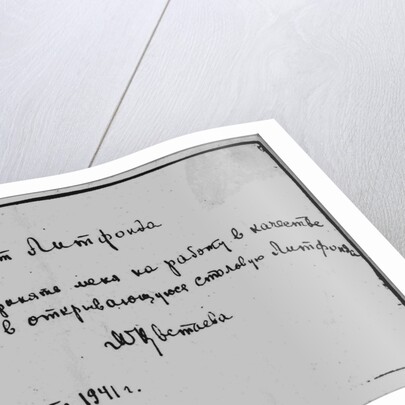 т Литфонда
меня на работу в качестве
в открывающуюся столовую Литфонда
МЦветаева
1941 г.